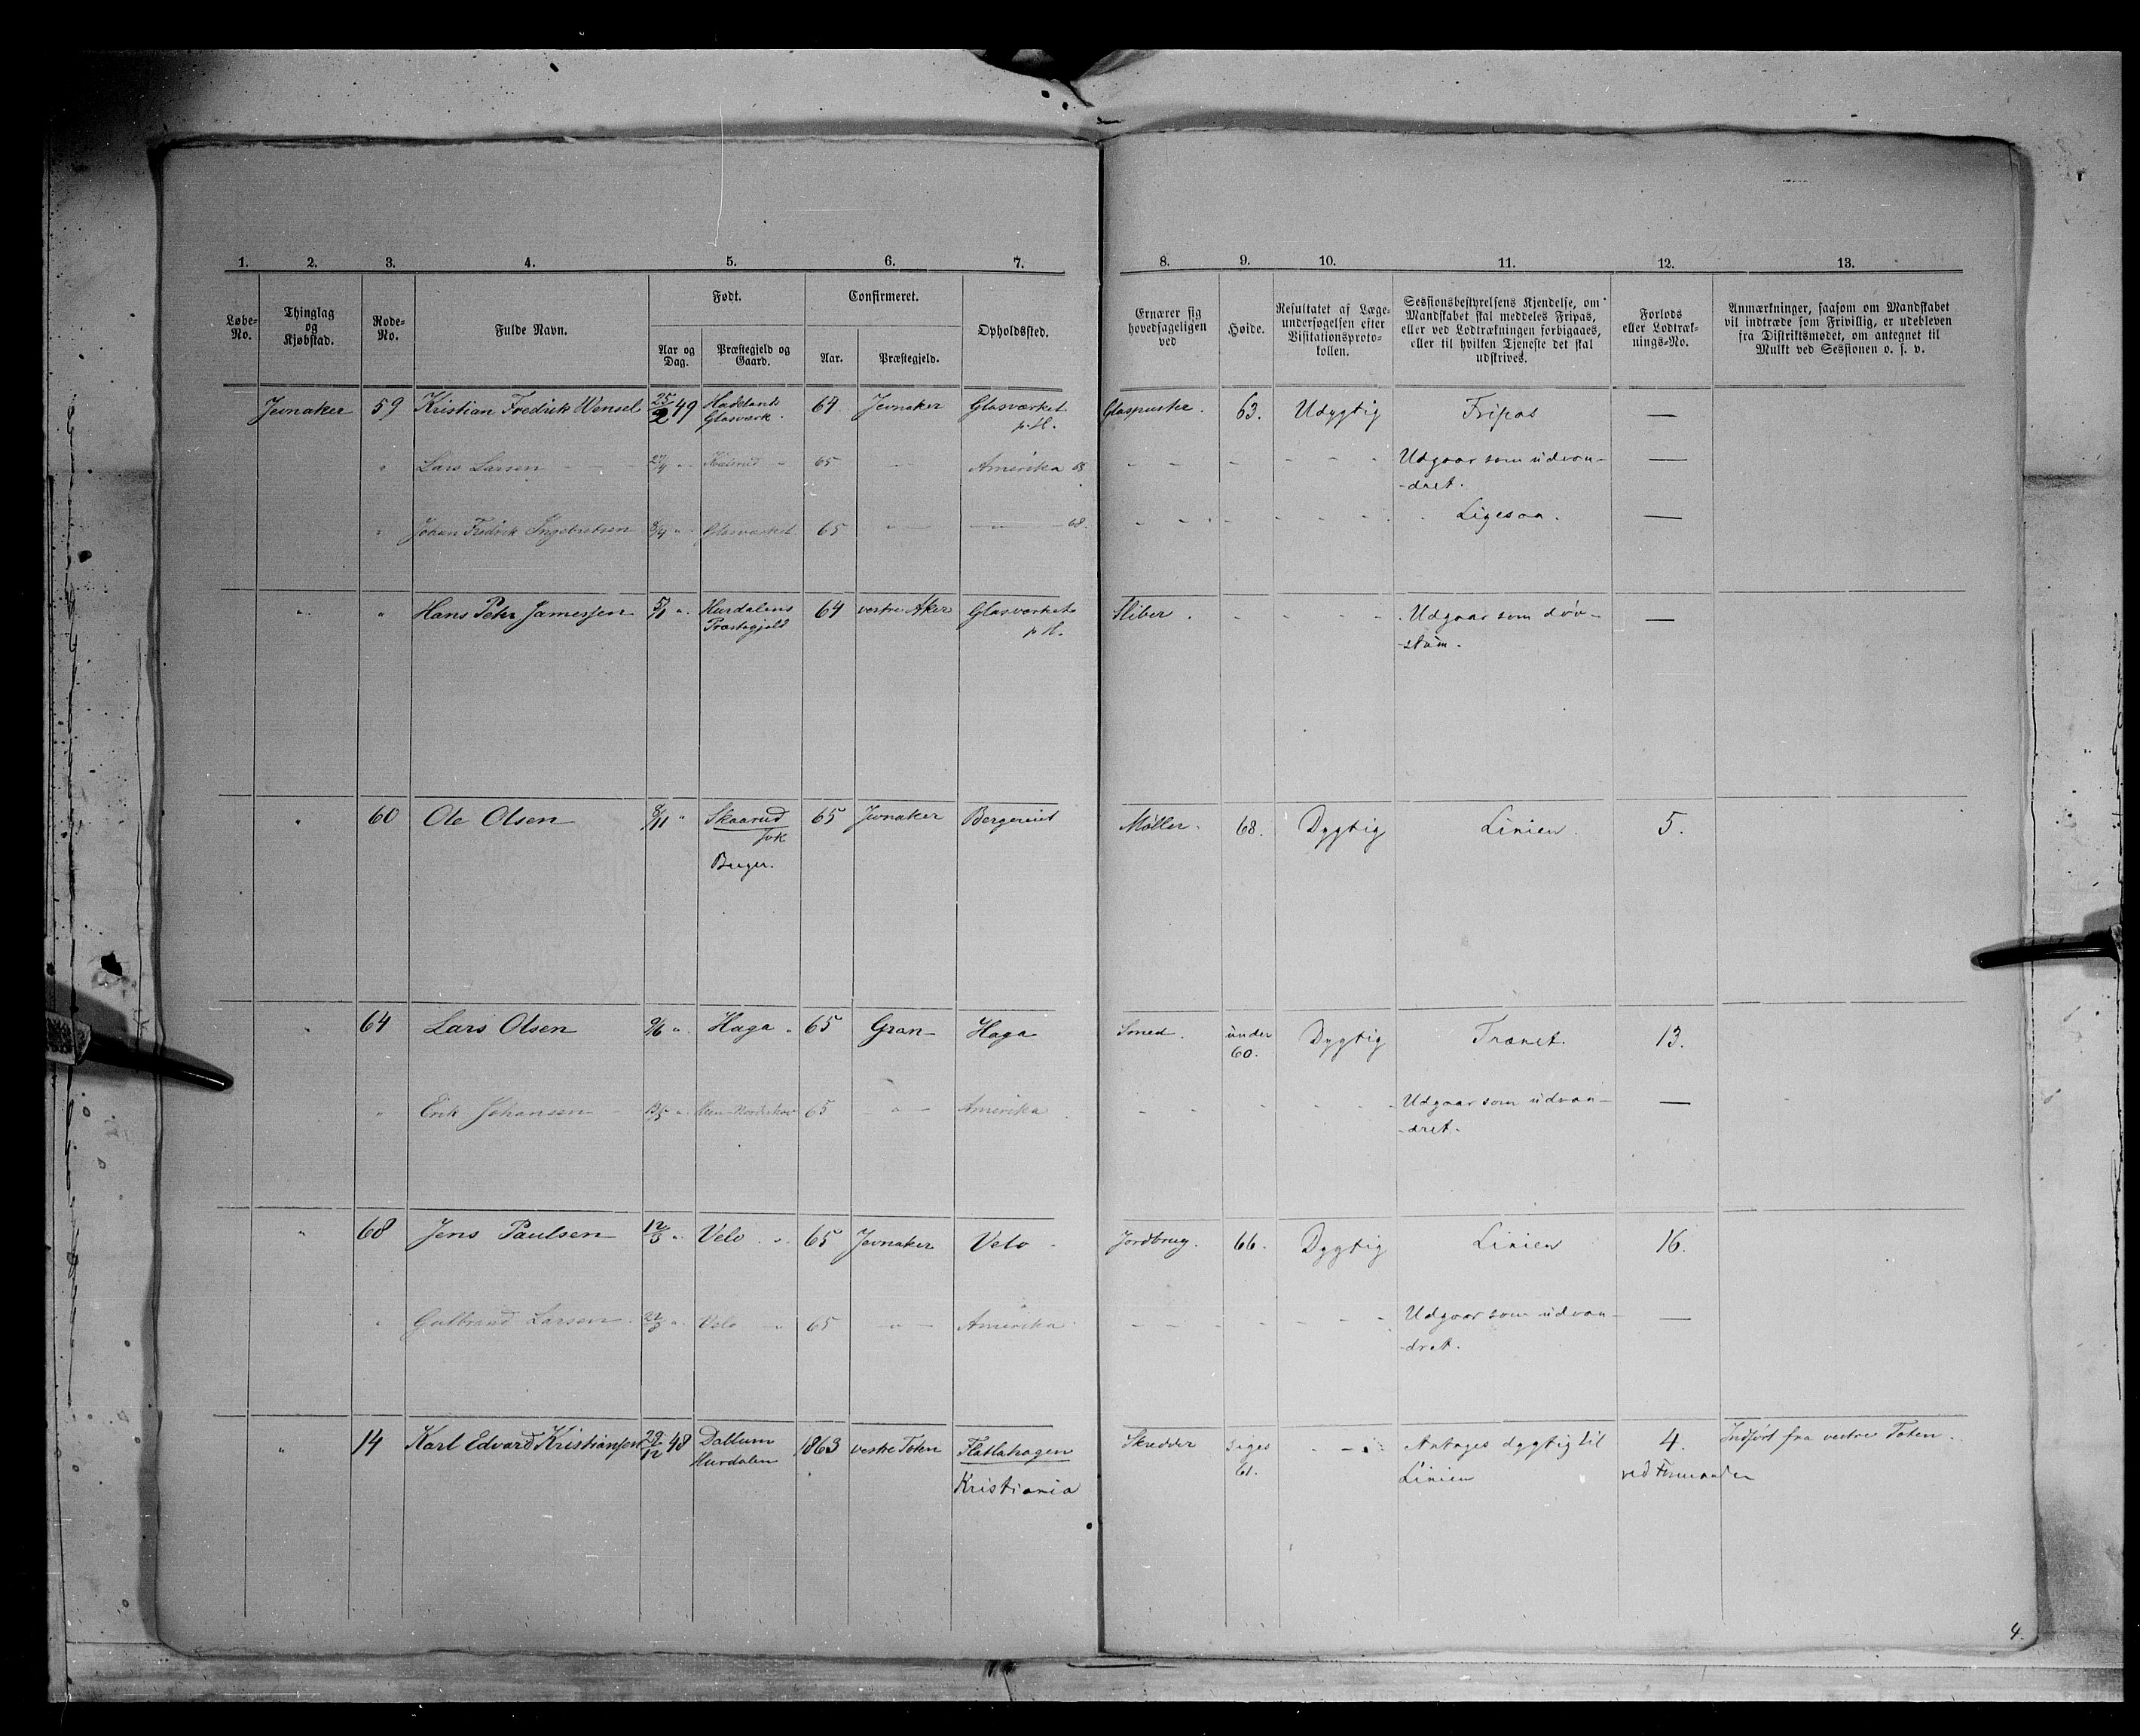 1. 2. 3. 4. 5. 6. 7. 8. 9. 10. 11. 12. 13.
Løbe-No.
Thinglag og Kjøbstad.
Rode-No.
Fulde Navn.
Født.
Aar og Dag.
Præstegjeld og Gaard.
Confirmeret.
Aar.
Præstegjeld.
Opholdssted.
Ernærer sig hovedsageligen ved
Høide.
Resultatet af Læge-undersøgelsen efter Visitationsproto-kollen.
Sessionsbestyrelsens Kjendelse, om Mandskabet skal meddeles Fripas, eller ved Lodtrækningen forbigaaes, eller til hvilken Tjeneste det skal udskrives.
Forlods eller Lodtræk-nings-No.
Anmærkninger, saasom om Mandskabet vil indtræde som Frivillig, er udebleven fra Distriktsmødet, om antegnet til Mulkt ved Sessionen o. s. v.
Jevnaker 59 Kristian Fredrik Wensel 25/2 49 Hadelands Glasværk. 64 Jevnaker Glasværket p.H. Glaspuster. 63. Udygtig Fripas —
" Lars Larsen 27/4 " 65 — Amerika 68 Udgaar som udvan-
-dret. —
" Johan Fredrik Ingebretsen 8/4 " Glasværket 65 " — — " — 68. Ligesaa. —
" " Hans Peter Jamessen 5/1 " Hurdalens Præstegjeld 64 vestre Aker Glasværket p H. Sliber. Udgaar som døv-
-stum. —
" 60 Ole Olsen 8/11 " Skaarud 65 Jevnaker Bergereiet Møller. 68. Dygtig Linien. 5.
Jvk
Buger.
" 64 Lars Olsen 9/6 " Haga " 65 Gran Haga Smed. under 60. Dygtig Trænet. 13.
" Erik Johansen 13/5 " Norderhov 65 — " — Amerika Udgaar som udvan-
-dret. —
" 68 Jens Paulsen 12/5 " Velo " 65 Jevnaker Velo Jordbrug. 66. Dygtig Linien 16.
" Gulbrand Larsen 22/3 " Velo " 65 " — Amerika Udgaar som udvan-
-dret. —
" 14 Karl Edvard Kristiansen 29/12 48 Dallum Hurdalen 1863 vestre Toten Flatlahagen Skredder siges 61. Antages dygtig til 4. Indført fra vestre Toten.
Kristiania Linien ved Formanden
4.